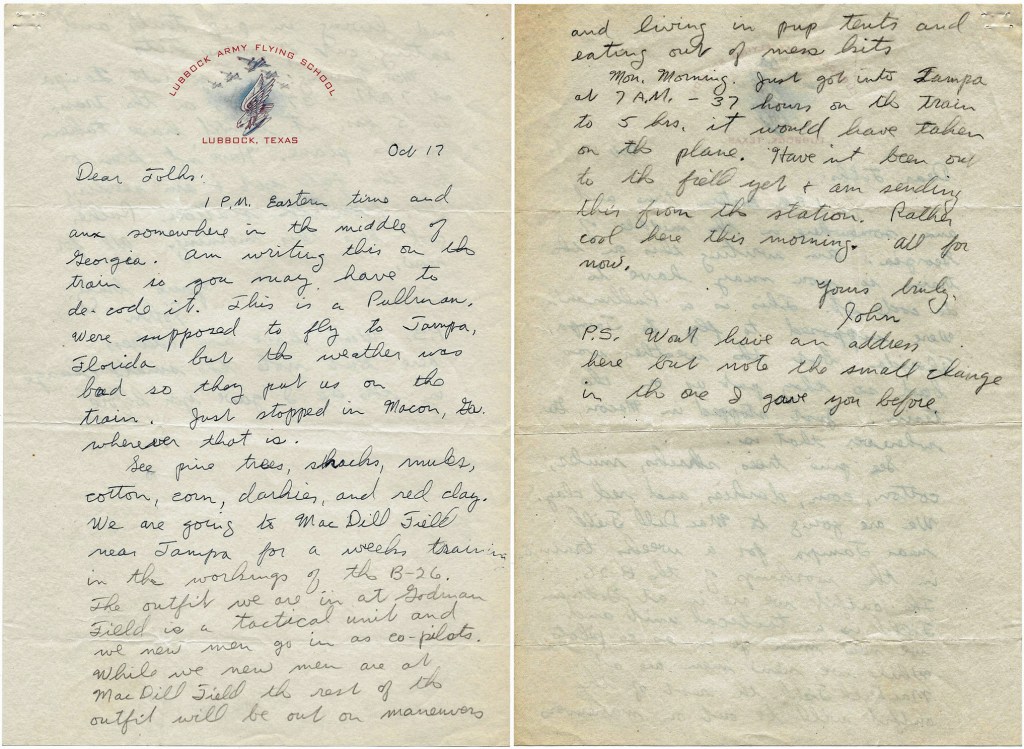 LUBBOCK ARMY FLYING SCHOOL
LUBBOCK, TEXAS
Oct 17
Dear Folks:
1 P.M. Eastern time and
am somewhere in the middle of
Georgia. Am writing this on the
train so you may have to
de-code it. This is a Pullman.
Were supposed to fly to Tampa,
Florida but the weather was
bad so they put us on the
train. Just stopped in Macon, Ga.
wherever that is.
See pine trees, shacks, mules,
cotton, corn, darkies, and red clay.
We are going to MacDill Field
near Tampa for a weeks training
in the workings of the B-26.
The outfit we are in at Godman
Field is a tactical unit and
we new men go in as co-pilots.
While we new men are at
MacDill Field the rest of the
outfit will be out on maneuvers
and living in pup tents and
eating out of mess kits
Mon. Morning. Just got into Tampa
at 7 A.M. - 37 hours on the train
to 5 hrs. it would have taken
on the plane. Have int been out
to the field yet + am sending
this from the station. Rather
cool here this morning. All for
now.
Yours truly,
John
P.S. Won't have an address
here but note the small change
in the one I gave you before.